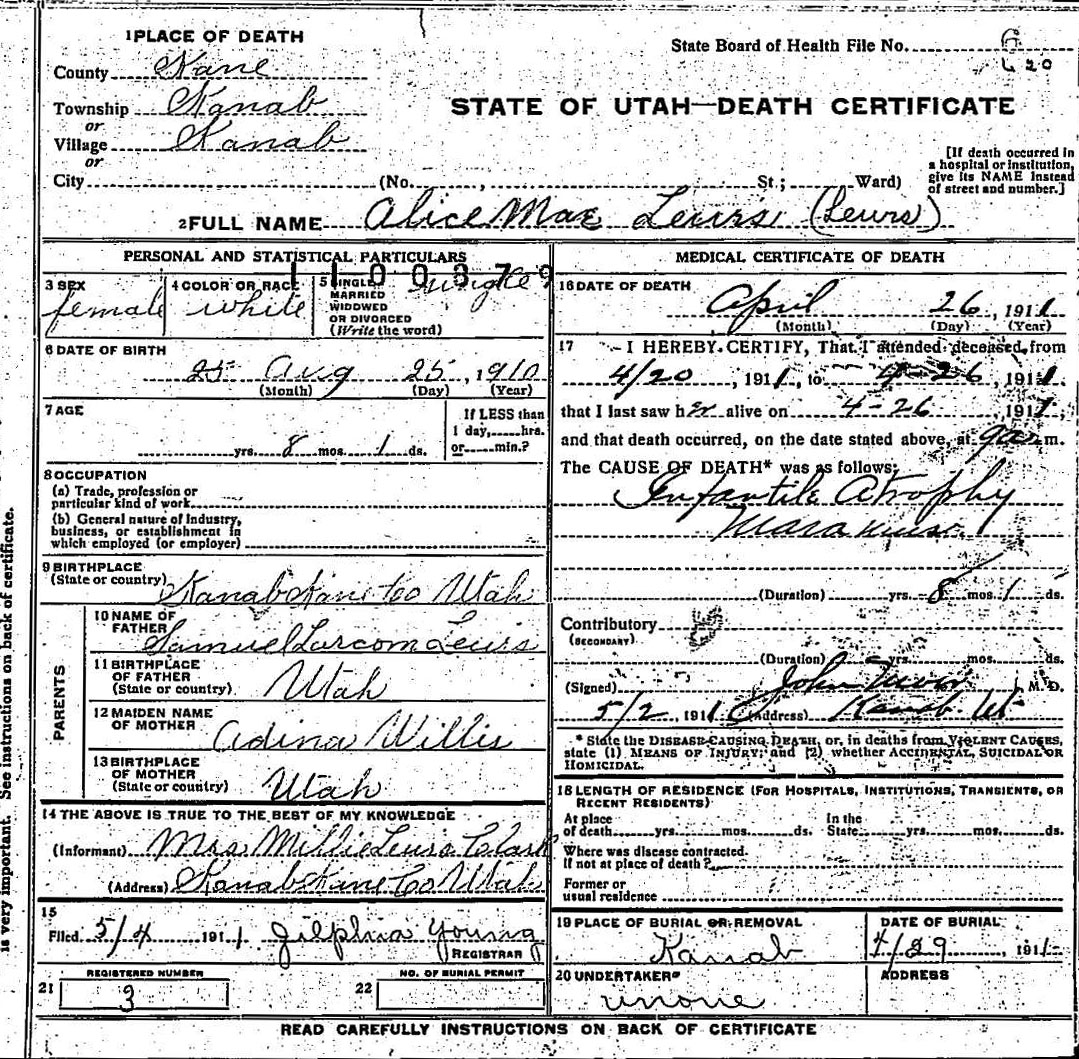 1 PLACE OF DEATH
County Kane
Township Kanab
or
Village Kanab
or
City (No. , St.; Ward)
State Board of Health File No. 6
620
STATE OF UTAH—DEATH CERTIFICATE
[If death occurred in
a hospital or institution,
give its NAME instead
of street and number.]
2 FULL NAME Alice Mae Lewis (Lewis)
PERSONAL AND STATISTICAL PARTICULARS
1100379
3 SEX
female
4 COLOR OR RACE
white
5 SINGLE
MARRIED
WIDOWED
OR DIVORCED
(Write the word)
Single
6 DATE OF BIRTH
25 Aug 25, 1910
(Month) (Day) (Year)
7 AGE
yrs. 8 mos. 1 ds.
If LESS than
1 day, hrs.
or min.?
8 OCCUPATION
(a) Trade, profession or
particular kind of work
(b) General nature of industry,
business, or establishment in
which employed (or employer)
9 BIRTHPLACE
(State or country) Kanab Kane Co Utah
PARENTS
10 NAME OF
FATHER
Samuel Larcom Lewis
11 BIRTHPLACE
OF FATHER
(State or country) Utah
12 MAIDEN NAME
OF MOTHER
Adina Willis
13 BIRTHPLACE
OF MOTHER
(State or country) Utah
14 THE ABOVE IS TRUE TO THE BEST OF MY KNOWLEDGE
(Informant) Mrs Millie Lewis Clark
(Address) Kanab Kane Co Utah
15
Filed 5/4 1911 Zilphia Young
REGISTRAR
REGISTERED NUMBER
21 3
NO. OF BURIAL PERMIT
22
MEDICAL CERTIFICATE OF DEATH
16 DATE OF DEATH
April 26, 1911
(Month) (Day) (Year)
17 I HEREBY CERTIFY, That I attended deceased from
4/20, 1911, to 4-26, 1911,
that I last saw her alive on 4-26, 1911,
and that death occurred, on the date stated above, at m.
The CAUSE OF DEATH* was as follows:
Infantile Atrophy
(Duration) yrs. 8 mos. 1 ds.
Contributory
(SECONDARY)
(Duration) yrs. mos. ds.
(Signed) John M. D.
5/2, 1911 (Address) Kanab Ut
* State the DISEASE CAUSING DEATH, or, in deaths from VIOLENT CAUSES,
state (1) MEANS OF INJURY; and (2) whether ACCIDENTAL, SUICIDAL OR
HOMICIDAL.
18 LENGTH OF RESIDENCE (FOR HOSPITALS, INSTITUTIONS, TRANSIENTS, OR
RECENT RESIDENTS)
At place
of death yrs. mos. ds.
In the
State yrs. mos. ds.
Where was disease contracted.
If not at place of death?
Former or
usual residence
19 PLACE OF BURIAL OR REMOVAL
Kanab
DATE OF BURIAL
4/29, 1911
20 UNDERTAKER
none
ADDRESS
READ CAREFULLY INSTRUCTIONS ON BACK OF CERTIFICATE
is very important. See instructions on back of certificate.